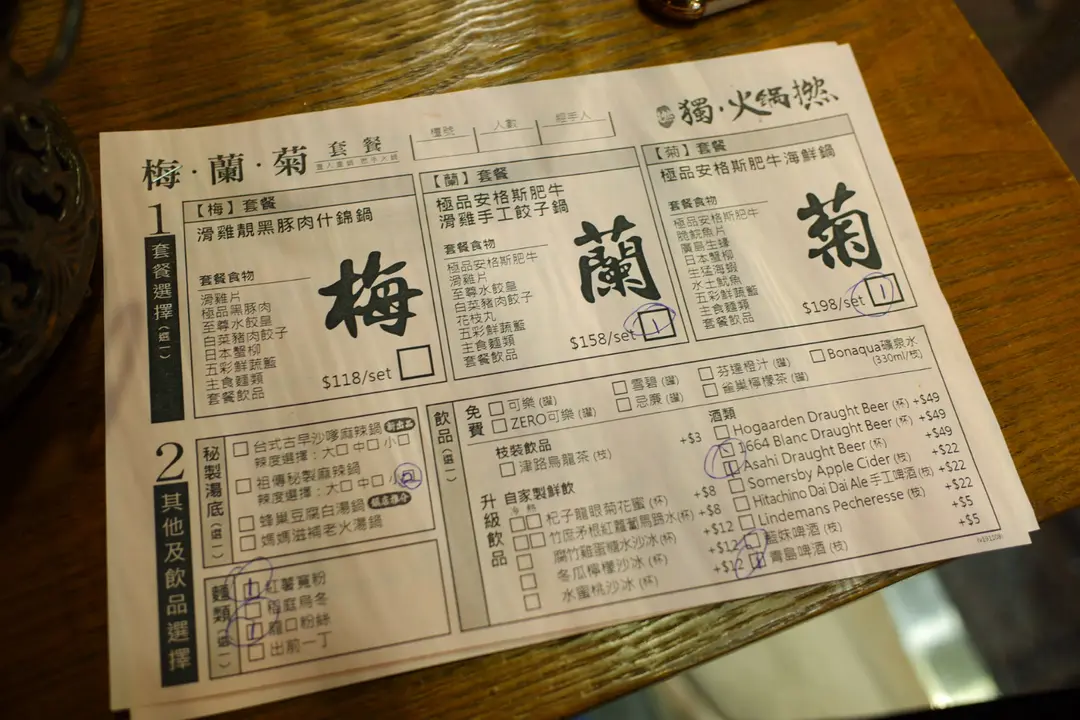 獨·火鍋撚
梅·蘭·菊 套餐
檯號 人數 經手人
1 套餐選擇(選一)
【梅】套餐
滑雞靚黑豚肉什錦鍋
套餐食物
滑雞片
極品黑豚肉
至尊水餃皇
白菜豬肉餃子
日本蟹柳
五彩鮮蔬籃
主食麵類
套餐飲品
梅
$118/set
【蘭】套餐
極品安格斯肥牛
滑雞手工餃子鍋
套餐食物
極品安格斯肥牛
滑雞片
至尊水餃皇
白菜豬肉餃子
花枝丸
五彩鮮蔬籃
主食麵類
套餐飲品
蘭
$158/set 1
【菊】套餐
極品安格斯肥牛海鮮鍋
套餐食物
極品安格斯肥牛
脆鯇魚片
廣島生蠔
日本蟹柳
生猛海蝦
水土魷魚
五彩鮮蔬籃
主食麵類
套餐飲品
菊
$198/set 1
2 其他及飲品選擇
秘製湯底(選一)
台式古早沙嗲麻辣鍋 新出品
辣度選擇:大 中 小
祖傳秘製麻辣鍋
辣度選擇:大 中 小
蜂巢豆腐白湯鍋
媽媽滋補老火湯鍋
麵類(選一)
紅薯寬粉
稻庭烏冬
龍口粉絲
出前一丁
飲品(選一)
免費
可樂(罐)
ZERO可樂(罐)
雪碧(罐)
忌廉(罐)
芬達橙汁(罐)
雀巢檸檬茶(罐)
Bonaqua礦泉水
(330ml/枝)
升級飲品
枝裝飲品
津路烏龍茶(枝) +$3
自家製鮮飲
冷 熱
杞子龍眼菊花蜜(杯) +$8
竹庶茅根紅蘿蔔馬蹄水(杯) +$8
腐竹雞蛋糖水沙冰(杯) +$12
冬瓜檸檬沙冰(杯) +$12
水蜜桃沙冰(杯) +$12
酒類
Hogaarden Draught Beer (杯) +$49
1664 Blanc Draught Beer (杯) +$49
Asahi Draught Beer (杯) +$49
Somersby Apple Cider (枝) +$22
Hitachino Dai Dai Ale 手工啤酒(枝) +$22
Lindemans Pecheresse (枝) +$22
藍妹啤酒(枝) +$5
青島啤酒(枝) +$5